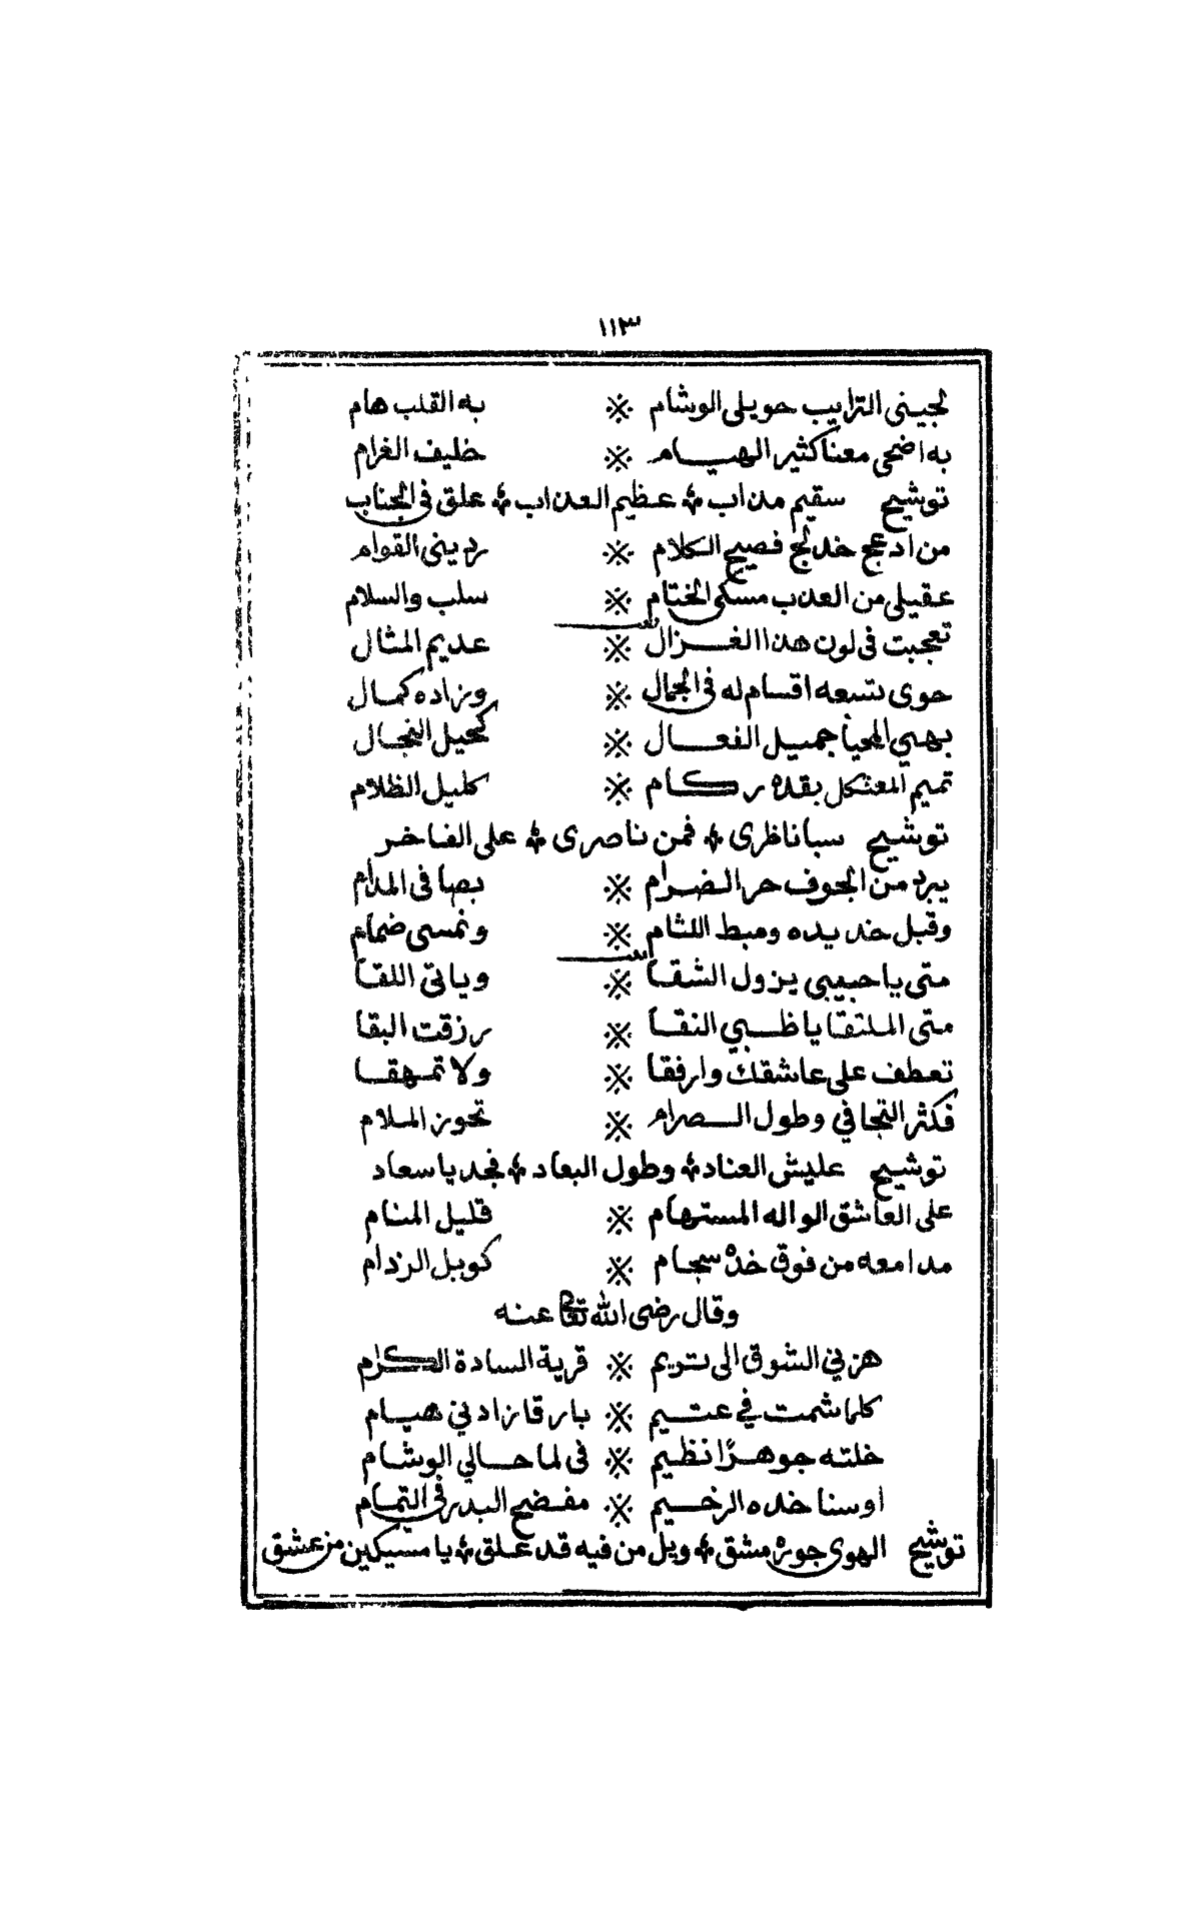 ١١٣
لجيني الترايب حويلي الوشام ※ به القلب هام
به اضحى معنا كثير الهيام ※ خليف الغرام
توشيح سقيم مذاب ۞ عظيم العذاب ۞ علق في الجناب
من ادعج خدلج فصيح الكلام ※ رديني القوام
عقيلي من العذب مسكي الختام ※ سلب والسلام
تعجبت في لون هذا الغزال ※ عديم المثال
حوى تسعه اقسام له في الجمال ※ وزاده كمال
بهي المحيا جميل الفعال ※ كحيل النجال
تميم المعثكل بقده ركام ※ كليل الظلام
توشيح سبا ناظرى ۞ فمن ناصرى ۞ على الفاخر
يبرد من الجوف حر الضرام ※ بصافى المدام
وقبل خديده ومبط اللثام ※ ونمسى ضمام
متى يا حبيبي يزول الشقا ※ وياتى اللقا
متى الملتقا يا ظبي النقا ※ رزقت البقا
تعطف على عاشقك وارفقا ※ ولا تمهقا
فكثر التجافي وطول الصرام ※ تحوز الملام
توشيح عليش العناد ۞ وطول البعاد ۞ فجد يا سعاد
على العاشق الواله المستهام ※ قليل المنام
مدامعه من فوق خده سجام ※ كوبل الزدام
وقال رضى الله تعالى عنه
هزني الشوق الى تريم ※ قرية السادة الكرام
كلما شمت في عتيم ※ بارقا زادني هيام
خلته جوهرًا نظيم ※ في لما حالي الوشام
اوسنا خده الرخيم ※ مفضح البدر في التمام
توشيح الهوى جوره مشق ۞ ويل من فيه قد علق ۞ يا مسيكين من عشق